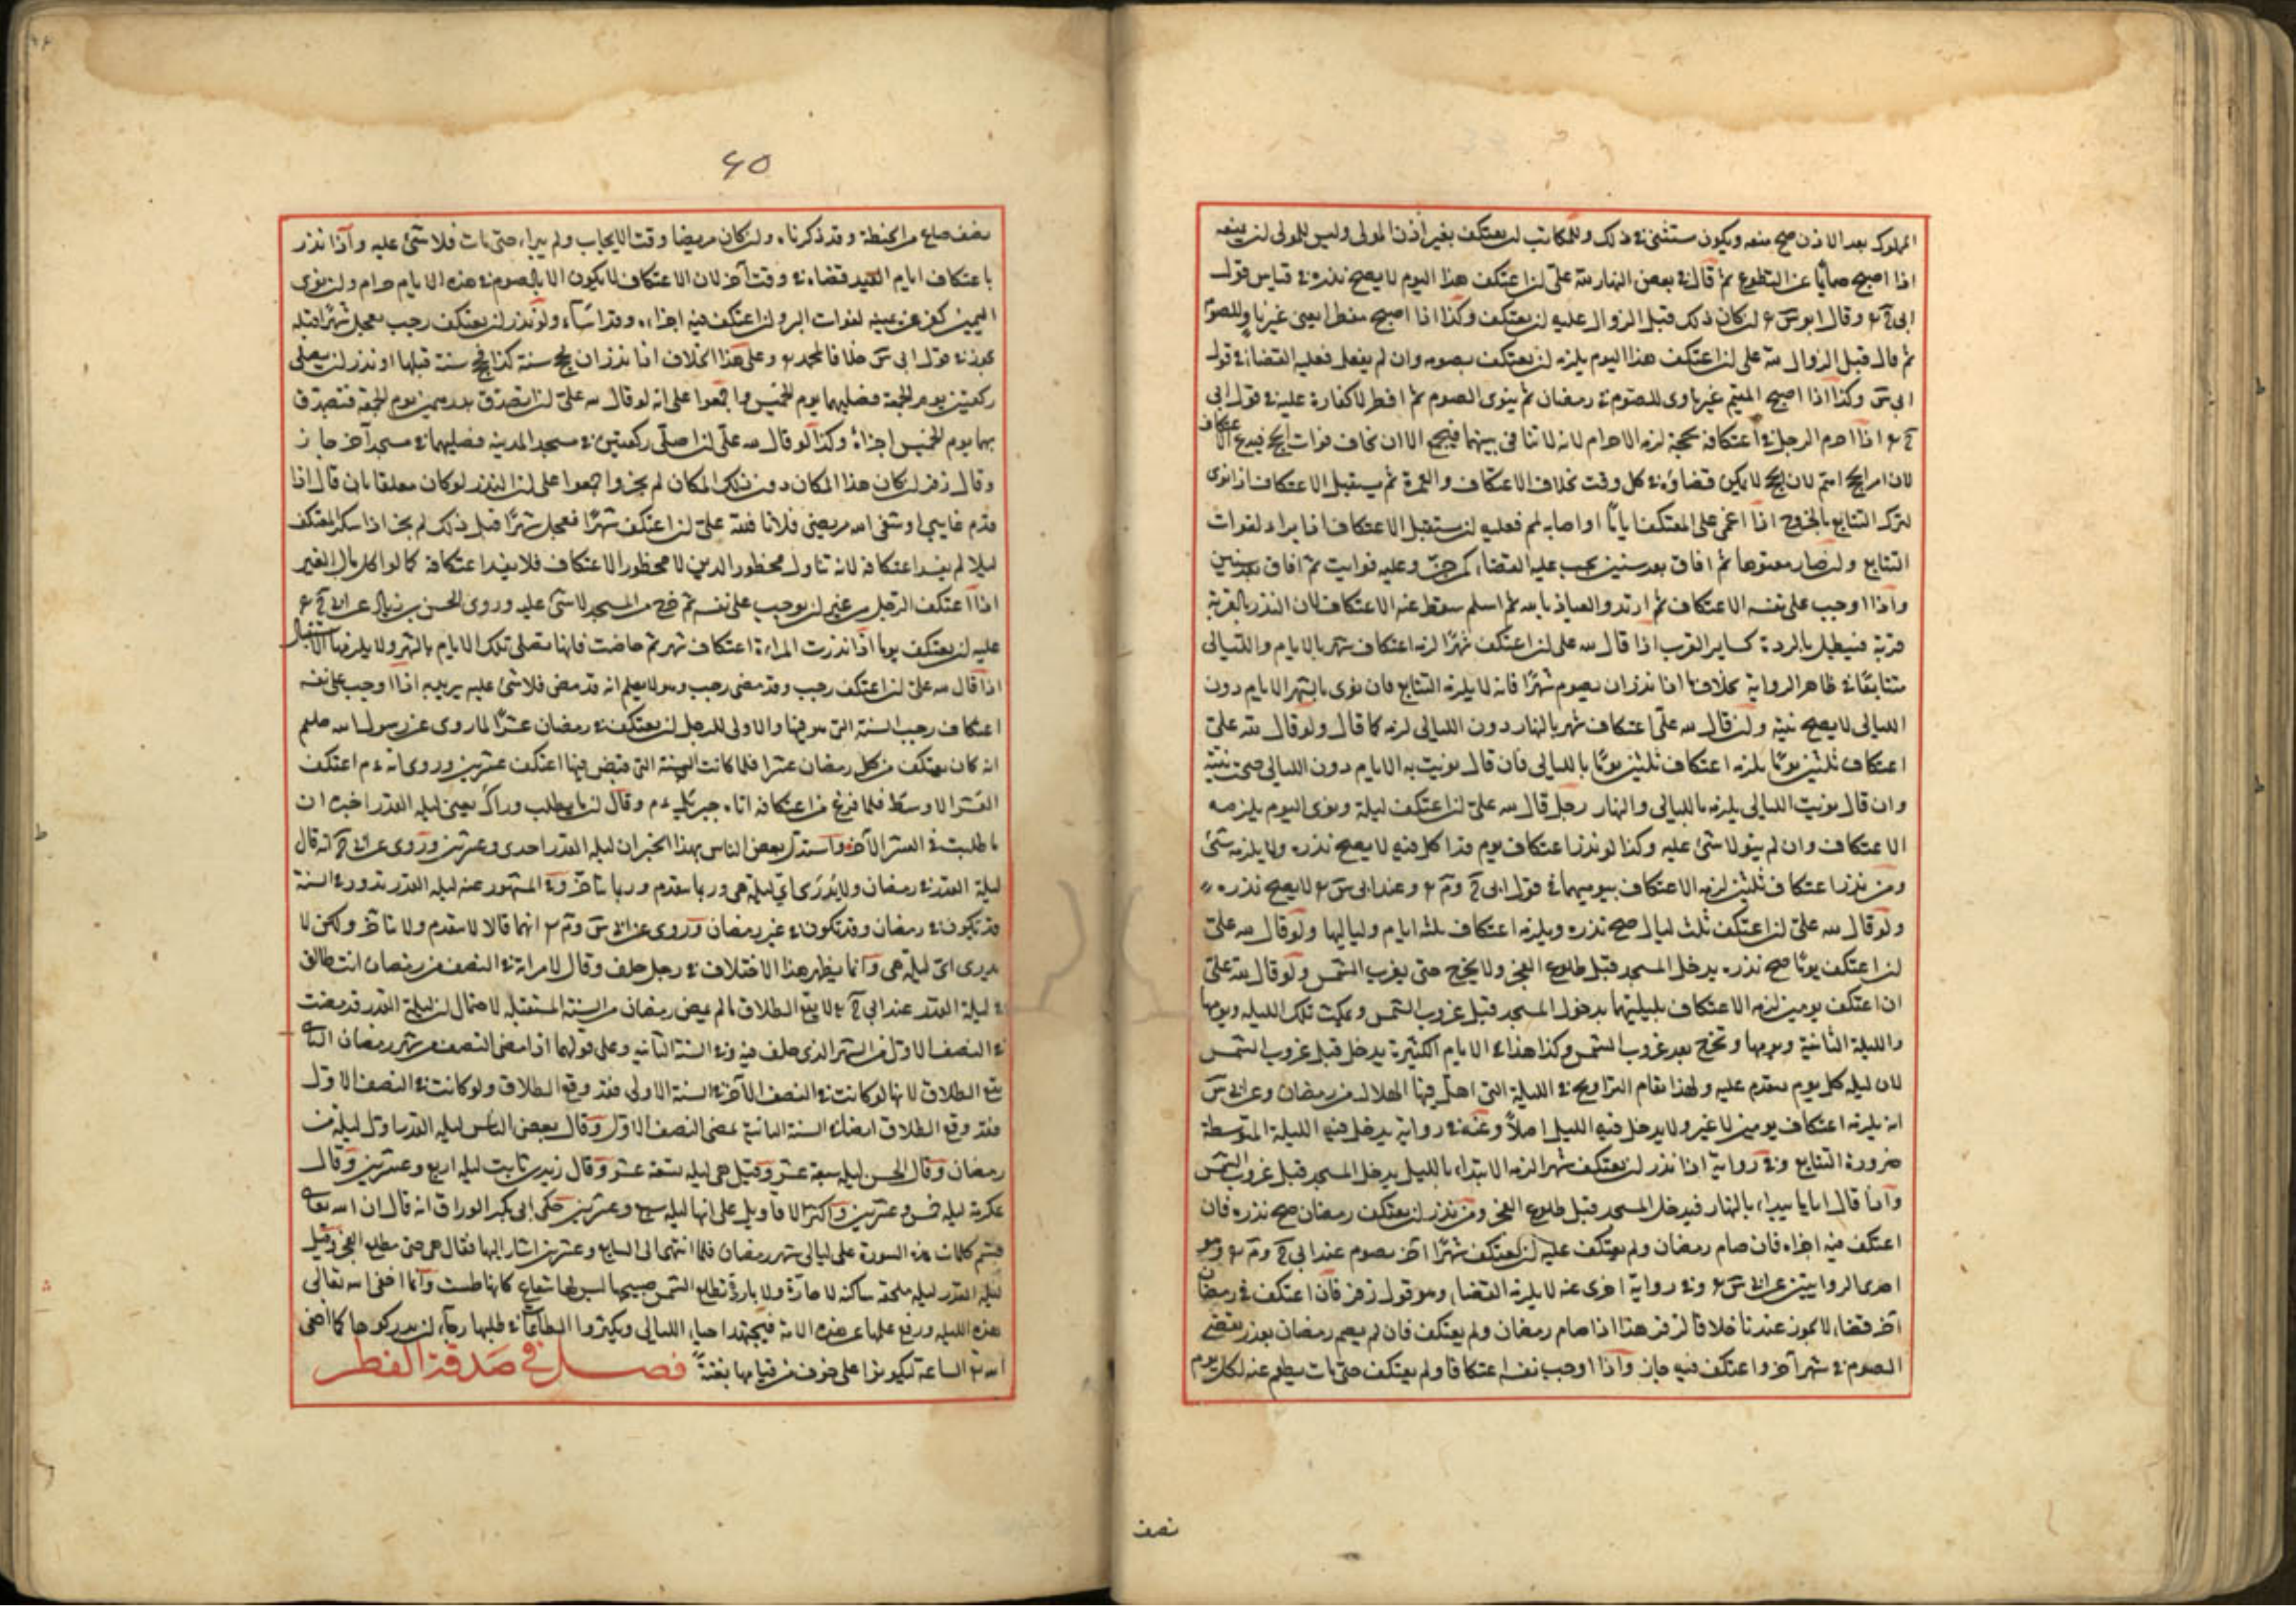 المملوك بعد الاذن صح منعه ويكون مستثنى في ذلك وللمكاتب ان يعتكف بغير اذن المولى وليس للمولى ان يمنعه
اذا اصبح صائما عن التطوع ثم قال في بعض النهار لله على ان اعتكف هذا اليوم لا يصح نذره في قياس قول
ابى ح ر وقال ابو س ر ان كان ذلك قبل الزوال عليه ان يعتكف وكذا اذا اصبح مفطرا يعنى غير ناو للصوم
ثم قال قبل الزوال لله على ان اعتكف هذا اليوم يلزمه ان يعتكف بصومه وان لم يفعل فعليه القضاء في قول
ابى س وكذا اذا اصبح المقيم غير ناوى للصوم في رمضان ثم ينوى الصوم ثم افطر لا كفارة عليه في قول ابى
ح ر اذا احرم الرجل في اعتكافه بحجة لزمه الاحرام لانه لا تنافى بينهما فيجمع الا ان يخاف فوات الحج فيدع الاعتكاف
لان امر الحج اهم لان الحج لا يمكن قضاؤه في كل وقت بخلاف الاعتكاف والعمرة ثم يستقبل الاعتكاف اذا نوى
لترك التتابع بالخروج اذا اغمى على المعتكف اياما او اصابه لمم فعليه ان يستقبل الاعتكاف اذا برا لفوات
التتابع وان صار معتوها ثم افاق بعد سنين يجب عليه القضاء كمن جن وعليه فوايت ثم افاق بعد سنين
واذا اوجب على نفسه الاعتكاف ثم ارتد والعياذ بالله ثم اسلم سقط عنه الاعتكاف لان النذر بالقربة
قربة فيبطل بالردة كساير القرب اذا قال لله على ان اعتكف شهرا لزمه اعتكاف شهر بالايام والليالى
متتابعا في ظاهر الرواية بخلاف ما اذا نذر ان يصوم شهرا فانه لا يلزمه التتابع فان نوى بالشهر الايام دون
الليالى لا يصح نيته وان قال لله على اعتكاف شهر بالنهار دون الليالى لزمه كما قال ولو قال لله على
اعتكاف ثلثين يوما يلزمه اعتكاف ثلثين يوما بالليالى فان قال نويت به الايام دون الليالى صحت نيته
وان قال نويت الليالى يلزمه بالليالى والنهار رجل قال لله على ان اعتكف ليلة ونوى اليوم يلزمه
الاعتكاف وان لم ينو لا شئ عليه وكذا لو نذر اعتكاف يوم قد اكل فيه لا يصح نذره ولا يلزمه شئ
ومن نذر اعتكاف ثلثين لزمه الاعتكاف بيوميهما في قول ابى ح وم ر وعند ابى س ر لا يصح نذره
ولو قال لله على ان اعتكف ثلث ليال صح نذره ويلزمه اعتكاف ثلثة ايام ولياليها ولو قال لله على
ان اعتكف يوما صح نذره يدخل المسجد قبل طلوع الفجر ولا يخرج حتى يغرب الشمس ولو قال لله على
ان اعتكف يومين لزمه الاعتكاف بليلتيهما يدخل المسجد قبل غروب الشمس ويمكث تلك الليلة ويومها
والليلة الثانية ويومها ويخرج بعد غروب الشمس وكذا هذا في الايام الكثيرة يدخل قبل غروب الشمس
لان ليلة كل يوم يتقدم عليه ولهذا يقام التراويح في الليلة التى اهل فيها الهلال من رمضان وعن ابى س
انه يلزمه اعتكاف يومين لا غير ولا يدخل فيه الليل اصلا وعنه في رواية يدخل فيه الليلة المتوسطة
ضرورة التتابع وفي رواية اذا نذر ان يعتكف شهرا لزمه الابتداء بالليل يدخل المسجد قبل غروب الشمس
واذا قال اياما يبداء بالنهار فيدخل المسجد قبل طلوع الفجر ومن نذر ان يعتكف رمضان صح نذره فان
اعتكف فيه اجزاه فان صام رمضان ولم يعتكف عليه ان يعتكف شهرا آخر بصوم عند ابى ح وم ر وهو
احدى الروايتين عن ابى س ر وفي رواية اخرى عنه لا يلزمه القضاء وهو قول زفر فان اعتكف في رمضان
آخر قضاء لا يجوز عندنا خلافا لزفر هذا اذا صام رمضان ولم يعتكف فان لم يصم رمضان بعذر يقضى
الصوم في شهر آخر واعتكف فيه جاز واذا اوجب نفسه اعتكافا ولم يعتكف حتى مات يطعم عنه لكل يوم
نصف
٤٥
نصف صاع من الحنطة وقد ذكرناه وان كان مريضا وقت الايجاب ولم يبراء حتى مات فلا شئ عليه واذا نذر
باعتكاف ايام العيد قضاه في وقت آخر لان الاعتكاف لا يكون الا بالصوم في هذه الايام حرام وان نوى
اليمين كفر عن يمينه لفوات البر وان اعتكف فيه اجزاه وقد اساء ولو نذر ان يعتكف رجب فعجل شهرا قبله
يجوز في قول ابى س خلافا لمحمد ر وعلى هذا الخلاف اذا نذر ان يحج سنة كذا فحج سنة قبلها او نذر ان يصلى
ركعتين يوم الجمعة فصليهما يوم الخميس واجمعوا على انه لو قال لله على ان اتصدق بدرهمين يوم الجمعة فتصدق
بهما يوم الخميس اجزاه وكذا لو قال لله على ان اصلى ركعتين في مسجد المدينه فصليهما في مسجد آخر جاز
وقال زفر ان كان هذا المكان دون ذلك المكان لم يجز واجمعوا على ان النذر لو كان معلقا بان قال اذا
قدم غايبى او شفى الله مريضى فلانا فلله على ان اعتكف شهرا فعجل شهرا قبل ذلك لم يجز اذا سكر المعتكف
ليلا لم يفسد اعتكافه لانه تناول محظور الدين لا محظور الاعتكاف فلا يفسد اعتكافه كما لو اكل مال الغير
اذا اعتكف الرجل من غير ان يوجب على نفسه ثم خرج من المسجد لا شئ عليه وروى الحسن بن زياد عن ابى ح ر
عليه ان يعتكف يوما اذا نذرت المراة اعتكاف شهر ثم حاضت فانها تصلى تلك الايام بالشهر ولا يلزمها الاستقبال
اذا قال لله على ان اعتكف رجب وقد مضى رجب وهو لا يعلم انه قد مضى فلا شئ عليه اذا اوجب على نفسه
اعتكاف رجب السنة التى هو فيها والاولى للرجل ان يعتكف في رمضان عشرا لما روى عن رسول الله صلعم
انه كان يعتكف من كل رمضان عشرا فلما كانت السنة التى قبض فيها اعتكف عشرين وروى انه ء م اعتكف
العشر الاوسط فلما فرغ من اعتكافه اتاه جبرئيل ء م وقال ان ما يطلب وراك يعنى ليلة القدر اخبره ان
ما طلبت في العشر الآخر واستدل بعض الناس بهذا الخبر ان ليلة القدر احدى وعشرين وروى عن ابى ح انه قال
ليلة القدر في رمضان ولا يدرى اى ليلة هى وربما يتقدم وربما يتاخر وفي المشهور عنه ليلة القدر تدور في السنة
قد تكون في رمضان وقد تكون في غير رمضان وروى عن ابى س وم ر انهما قالا لا يتقدم ولا يتاخر ولكن لا
يدرى اى ليلة هى وانما يظهر هذا الاختلاف في رجل حلف وقال لامراته في النصف من رمضان انت طالق
في ليلة القدر عند ابى ح ر لا يقع الطلاق ما لم يمض رمضان من السنة المستقبله لاحتمال ان ليلة القدر قد مضت
في النصف الاول من الشهر الذى حلف فيه وفي السنة الثانيه وعلى قولهما اذا مضى النصف من شهر رمضان الثانى
يقع الطلاق لانها لو كانت في النصف الآخر في السنة الاولى فقد وقع الطلاق ولو كانت في النصف الاول
فقد وقع الطلاق ايضا في السنة الثانية بمضى النصف الاول وقال بعض الناس ليلة القدر اول ليلة من
رمضان وقال الحسن ليلة سبعة عشر وقيل هى ليله تسعة عشر وقال زيد بن ثابت ليله اربع وعشرين وقال
عكرمة ليله خمس وعشرين واكثر الاقاويل على انها ليله سبع وعشرين حكى ابى بكر الوراق انه قال ان الله تعالى
قسم كلمات هذه السورة على ليالى شهر رمضان فلما انتهى الى السابع وعشرين اشار اليها فقال هى حتى مطلع الفجر وقيل
ليلة القدر ليله بلجة ساكنه لا حارة ولا باردة تطلع الشمس صبيحها ليس لها شعاع كانها طست وانما اخفى الله تعالى
هذه الليله ورفع علمها عن هذه الامة فيجتهد احياء الليالى ويكثروا الطاعات في طلبها رجاء ان يدركوها كما اخفى
الله تع الساعة ليكونوا على خوف من قيامها بغتة فصل في صدقة الفطر